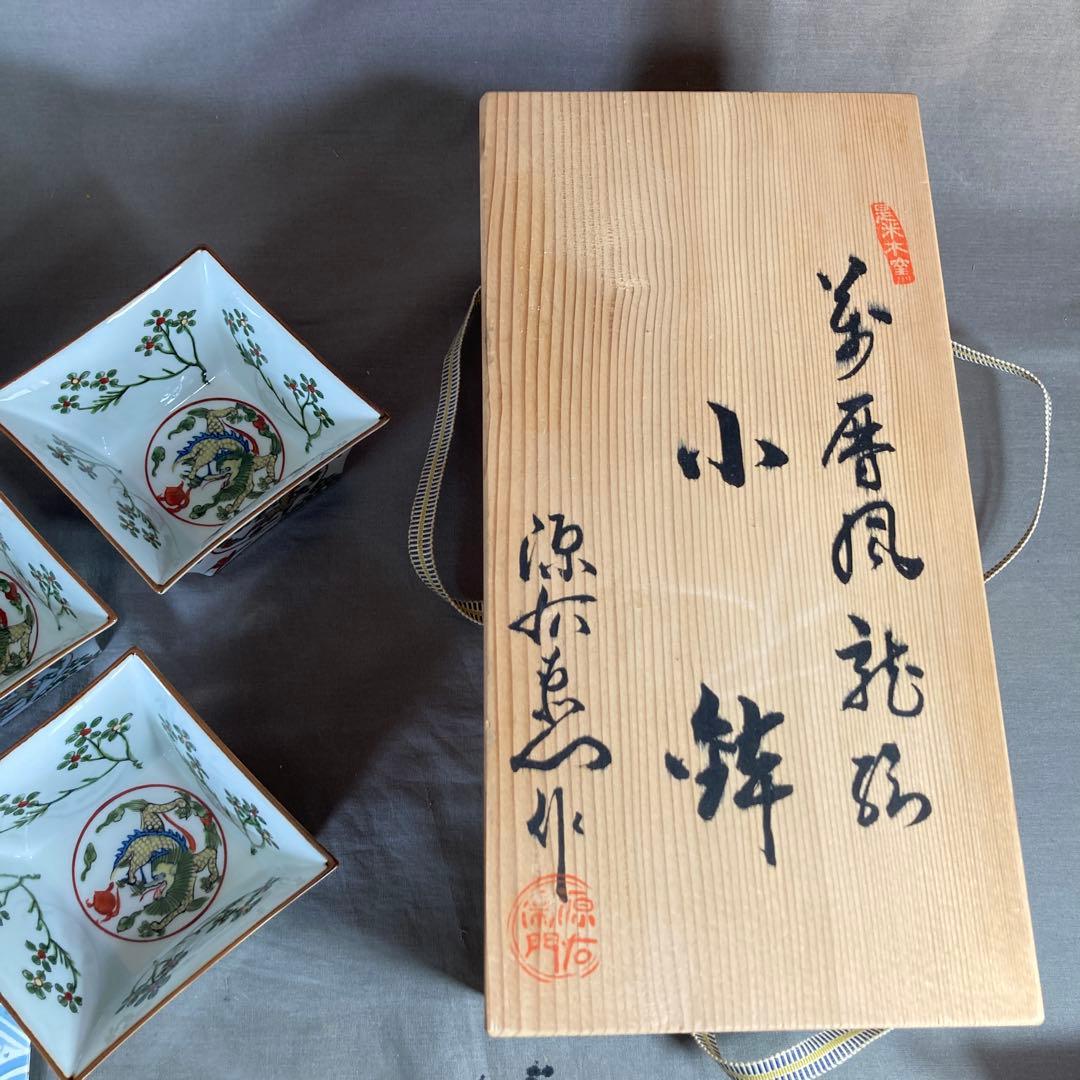 黒米木窯
萬暦風龍彫
小鉢
源右衛門作
源右衛門